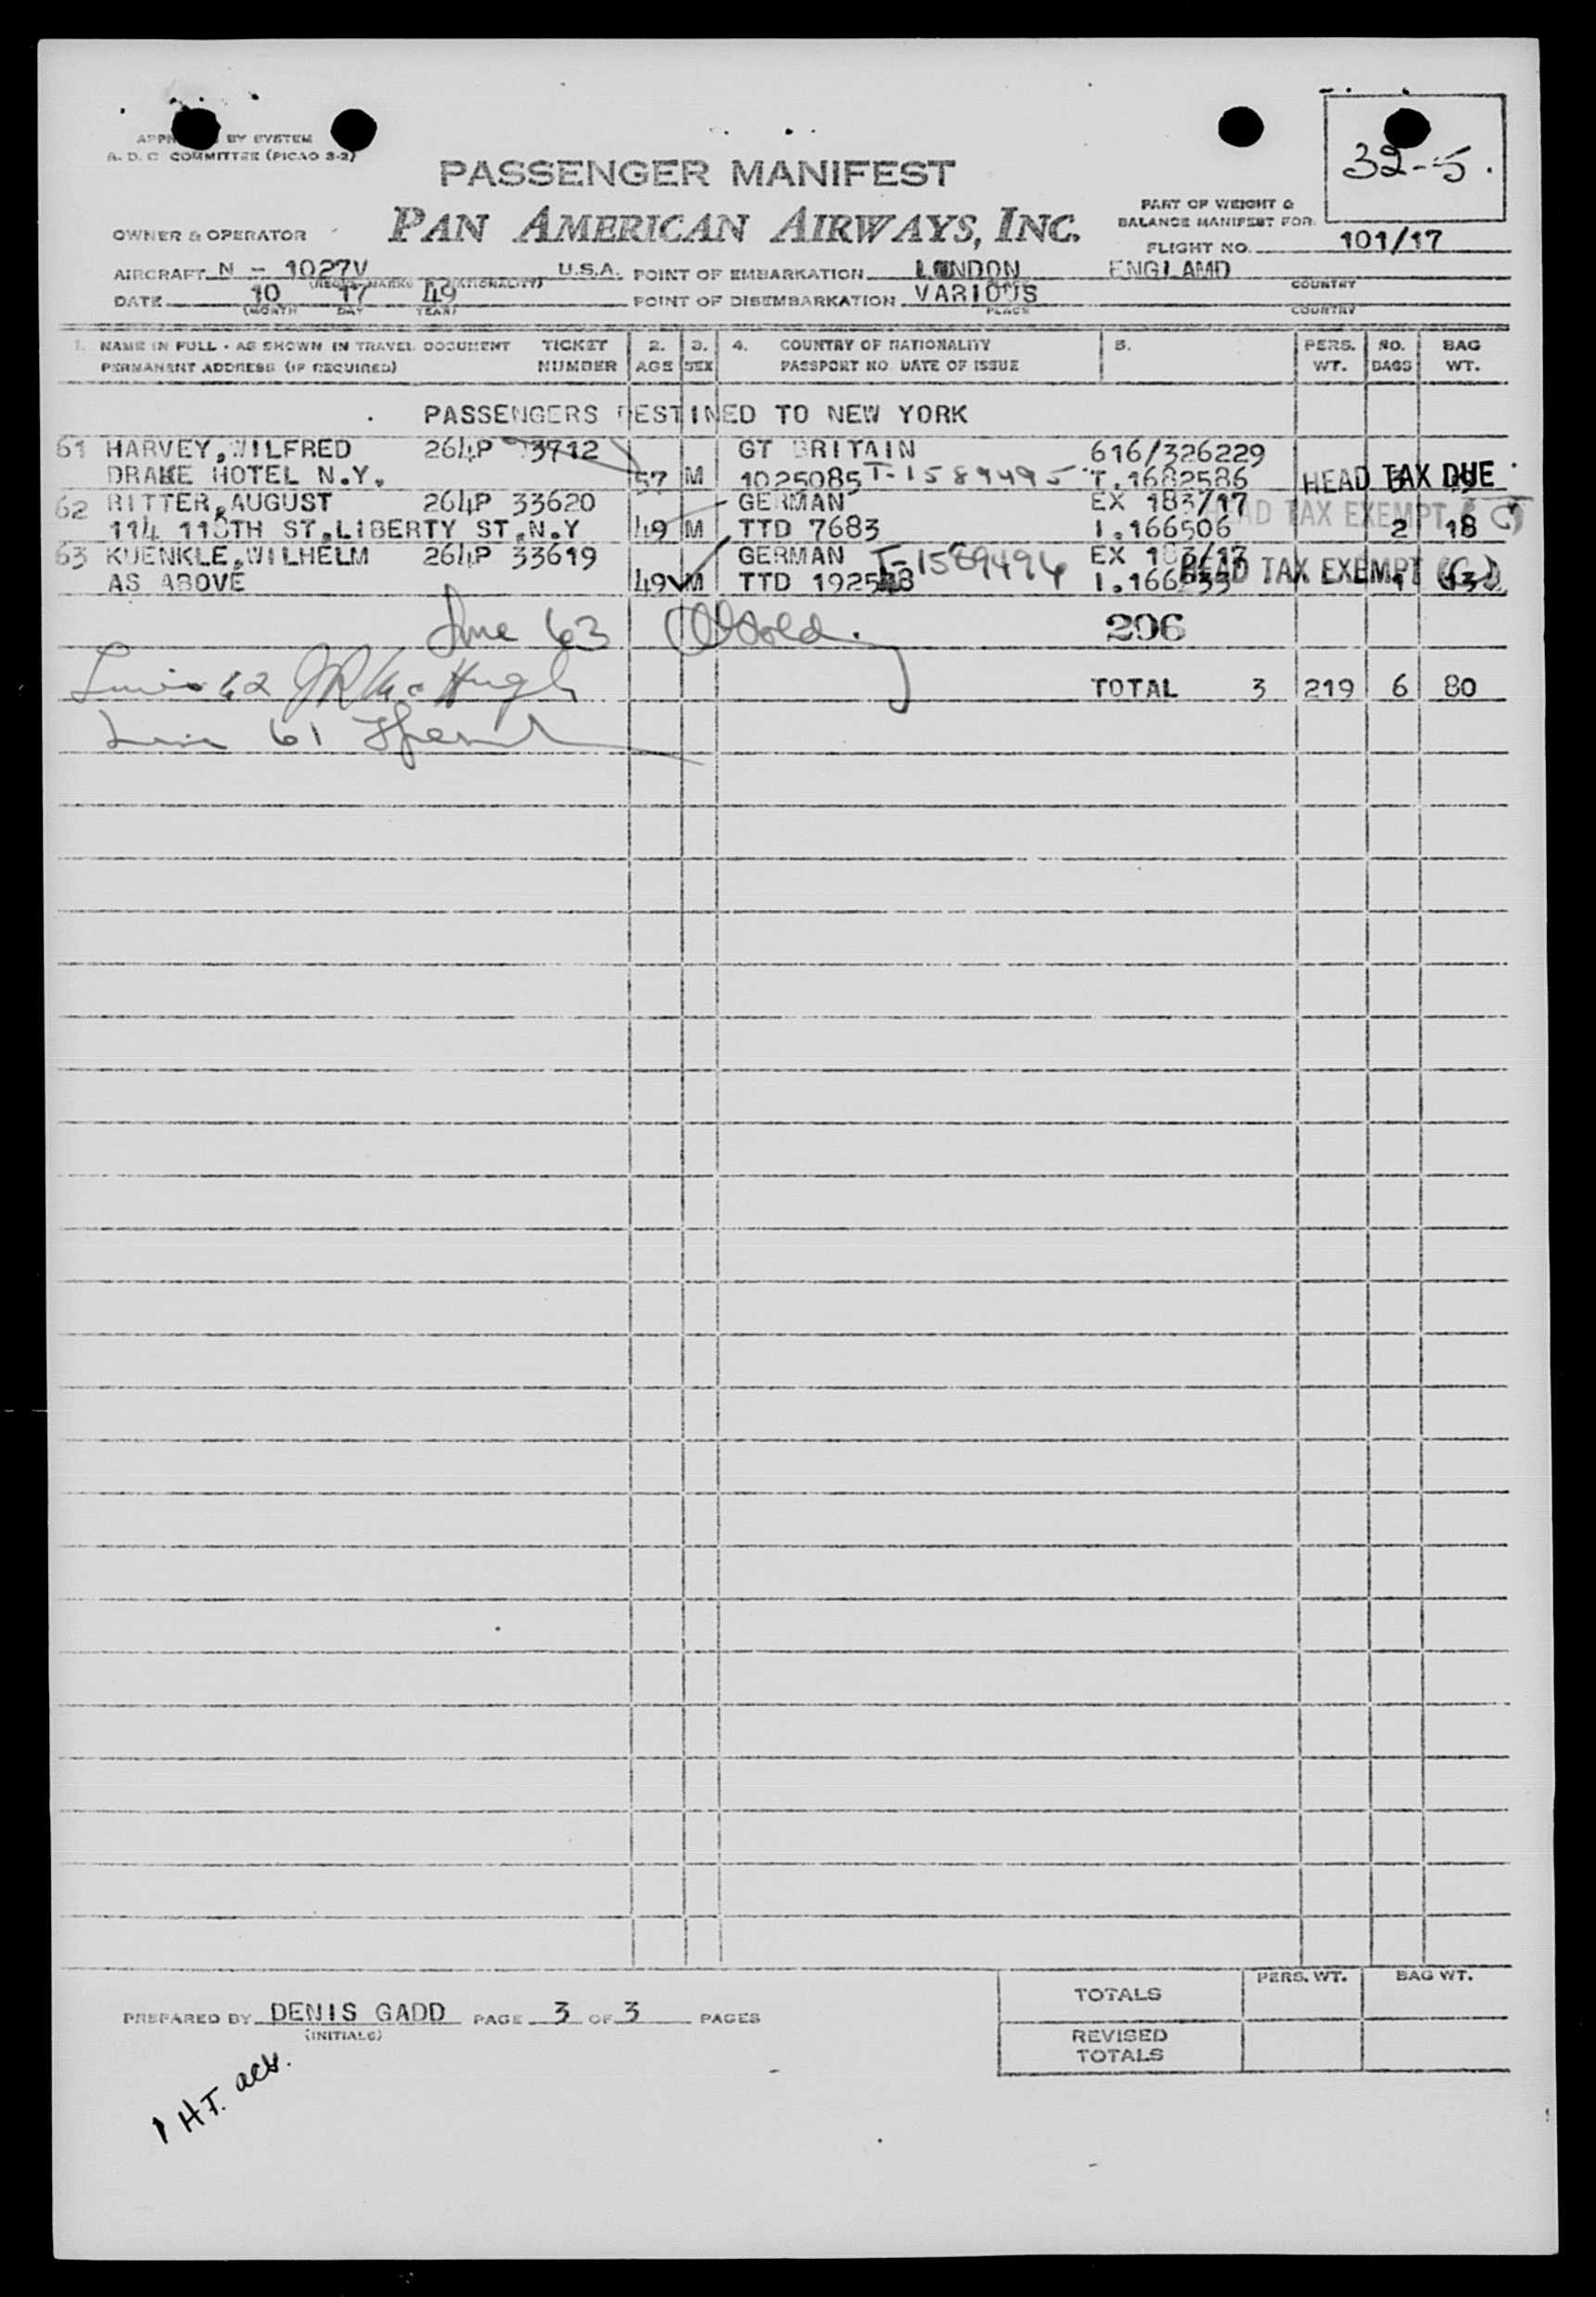 BY SYSTEM
A. D. C. COMMITTEE (PICAO 3-2)
32-5.
PASSENGER MANIFEST
PAN AMERICAN AIRWAYS, INC.
PART OF WEIGHT &
BALANCE MANIFEST FOR
OWNER & OPERATOR
FLIGHT NO. 101/17
AIRCRAFT N - 1027V U.S.A. POINT OF EMBARKATION LONDON ENGLAND
COUNTRY
DATE 10 17 49 POINT OF DISEMBARKATION VARIOUS
(MONTH DAY YEAR) PLACE COUNTRY
1. NAME IN FULL - AS SHOWN IN TRAVEL DOCUMENT TICKET 2. 3. 4. COUNTRY OF NATIONALITY 5. PERS. NO. BAG
PERMANENT ADDRESS (IF REQUIRED) NUMBER AGE SEX PASSPORT NO. DATE OF ISSUE WT. BAGS WT.
PASSENGERS DESTINED TO NEW YORK
61 HARVEY, WILFRED 264P 3712 GT BRITAIN 616/326229
DRAKE HOTEL N.Y. 57 M 1025085 T-1589495 T.1682586 HEAD TAX DUE
62 RITTER, AUGUST 264P 33620 GERMAN EX 183/17
114 118TH ST, LIBERTY ST, N.Y 49 M TTD 7683 I.166506 HEAD TAX EXEMPT 2 18
63 KUENKLE, WILHELM 264P 33619 GERMAN T-1589494 EX 183/17
AS ABOVE 49 M TTD HEAD TAX EXEMPT 1
Line 63 206
Line 62 JR McHugh
TOTAL 3 219 6 80
Line 61
TOTALS PERS. WT. BAG WT.
REVISED
TOTALS
PREPARED BY DENIS GADD PAGE 3 OF 3 PAGES
(INITIALS)
1 H.T. acs.